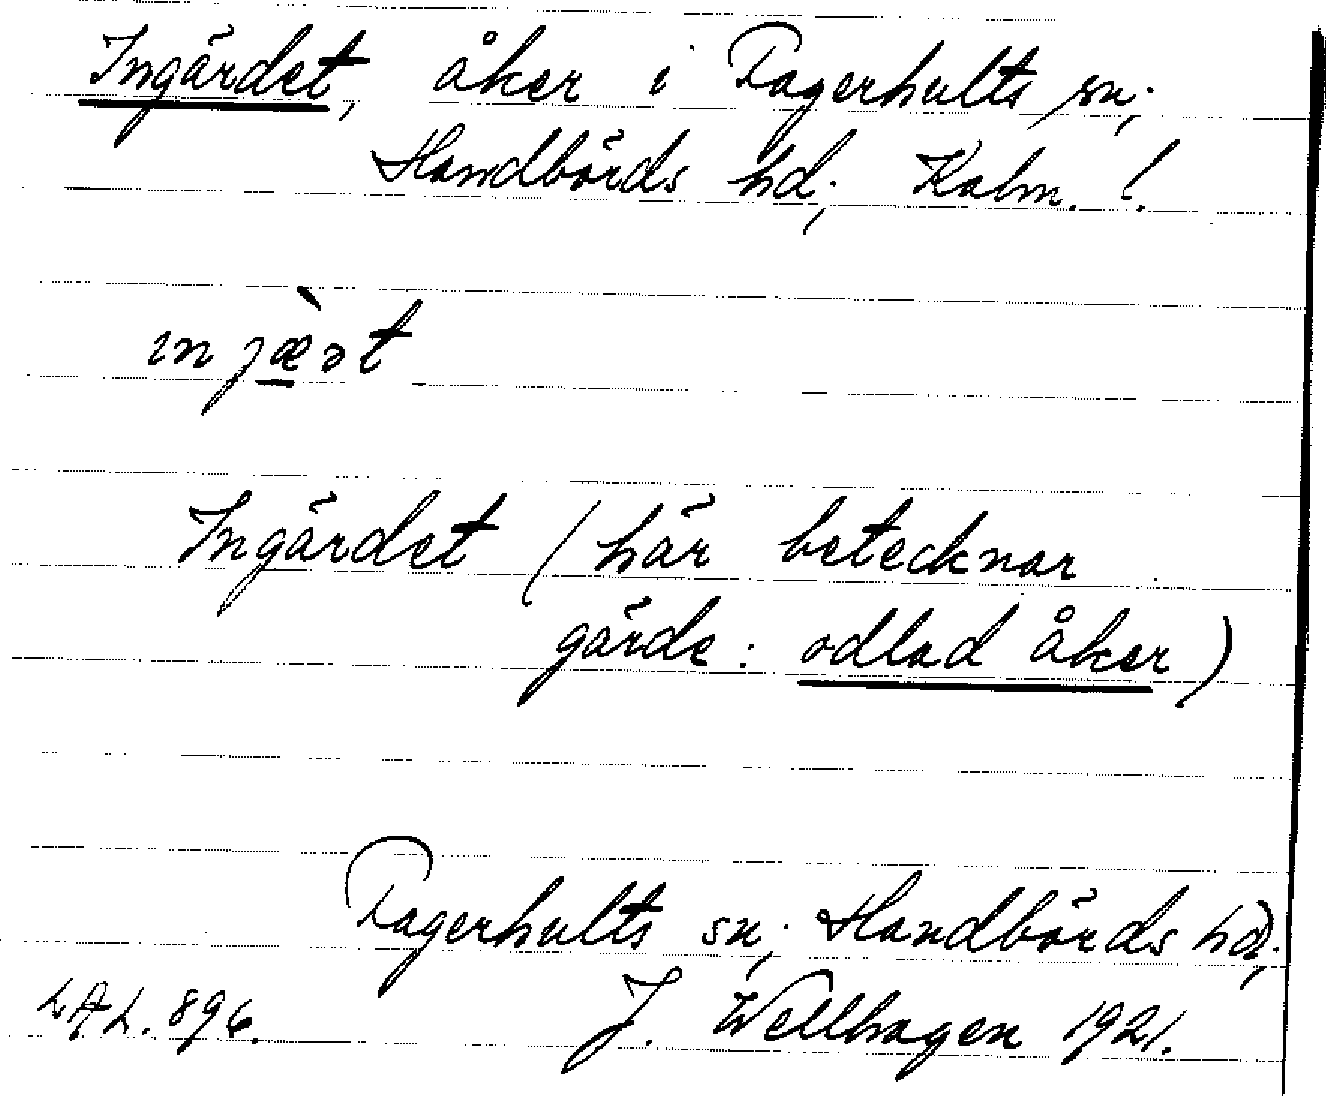 Ingärdet, åker i Fagerhults sn;
Handbörds hd; Kalm. l.
ɪnjæ̀ət
Ingärdet (här betecknar
gärde: odlad åker)
Fagerhults sn; Handbörds hd;
LAL. 896. J. Wellhagen 1921.